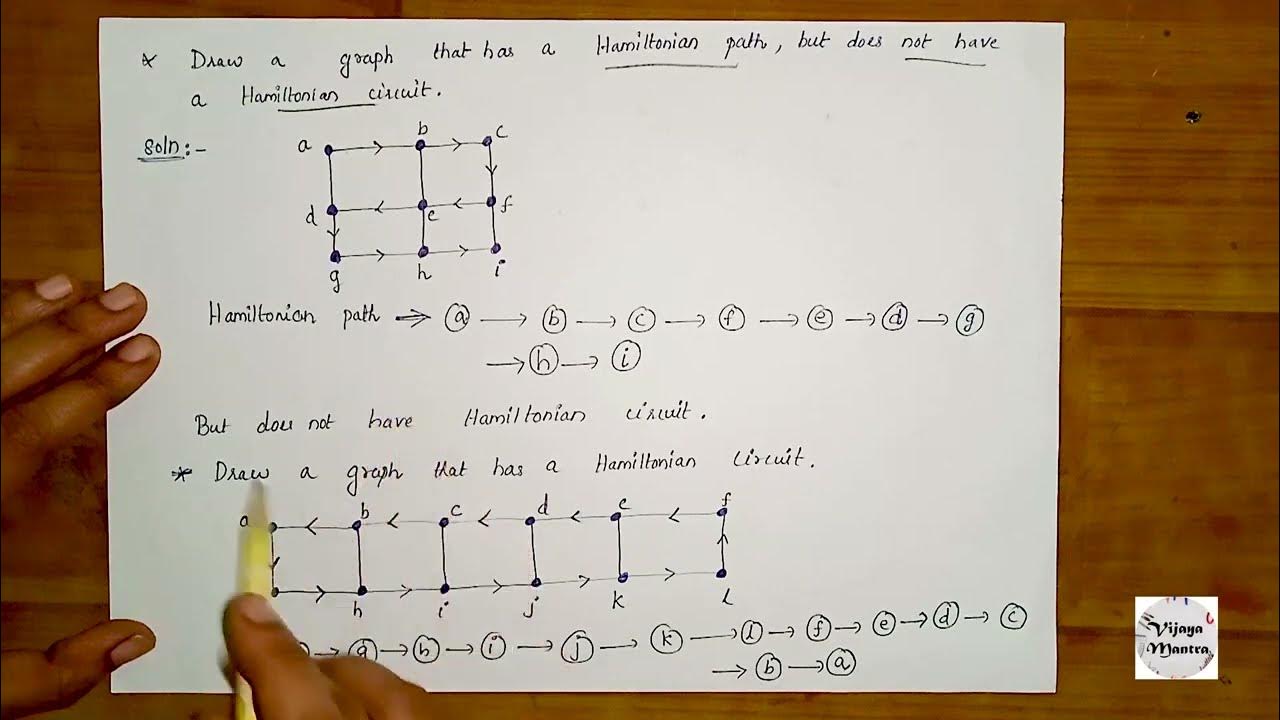 * Draw a graph that has a Hamiltonian path, but does not have
a Hamiltonian circuit.
Soln:-
a b c
d e f
g h i
Hamiltonian path ⇒ a → b → c → f → e → d → g
→ h → i
But does not have Hamiltonian circuit.
* Draw a graph that has a Hamiltonian circuit.
a b c d e f
h i j k l
→ g → h → i → j → k → l → f → e → d → c
→ b → a
Vijaya
Mantra